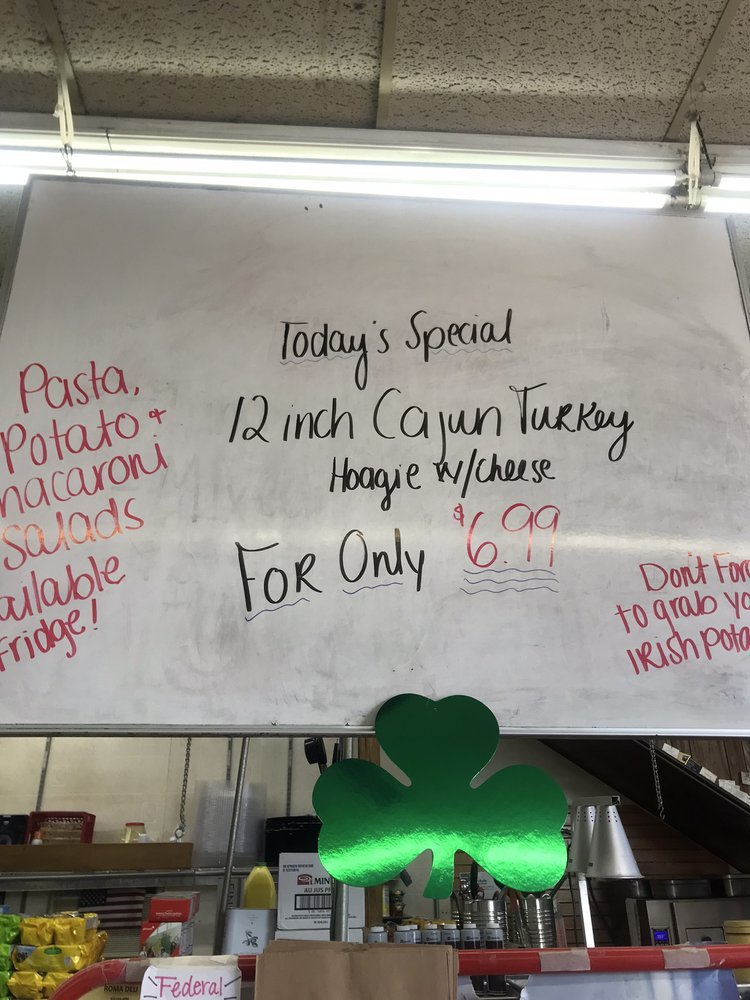 Today's Special
12 inch Cajun Turkey
Hoagie w/cheese
For Only $6.99
Pasta,
Potato +
macaroni
Salads
available
Fridge!
Don't For
to grab yo
Irish Pota
MIN
AU JUS
ROMA DELI
Federal